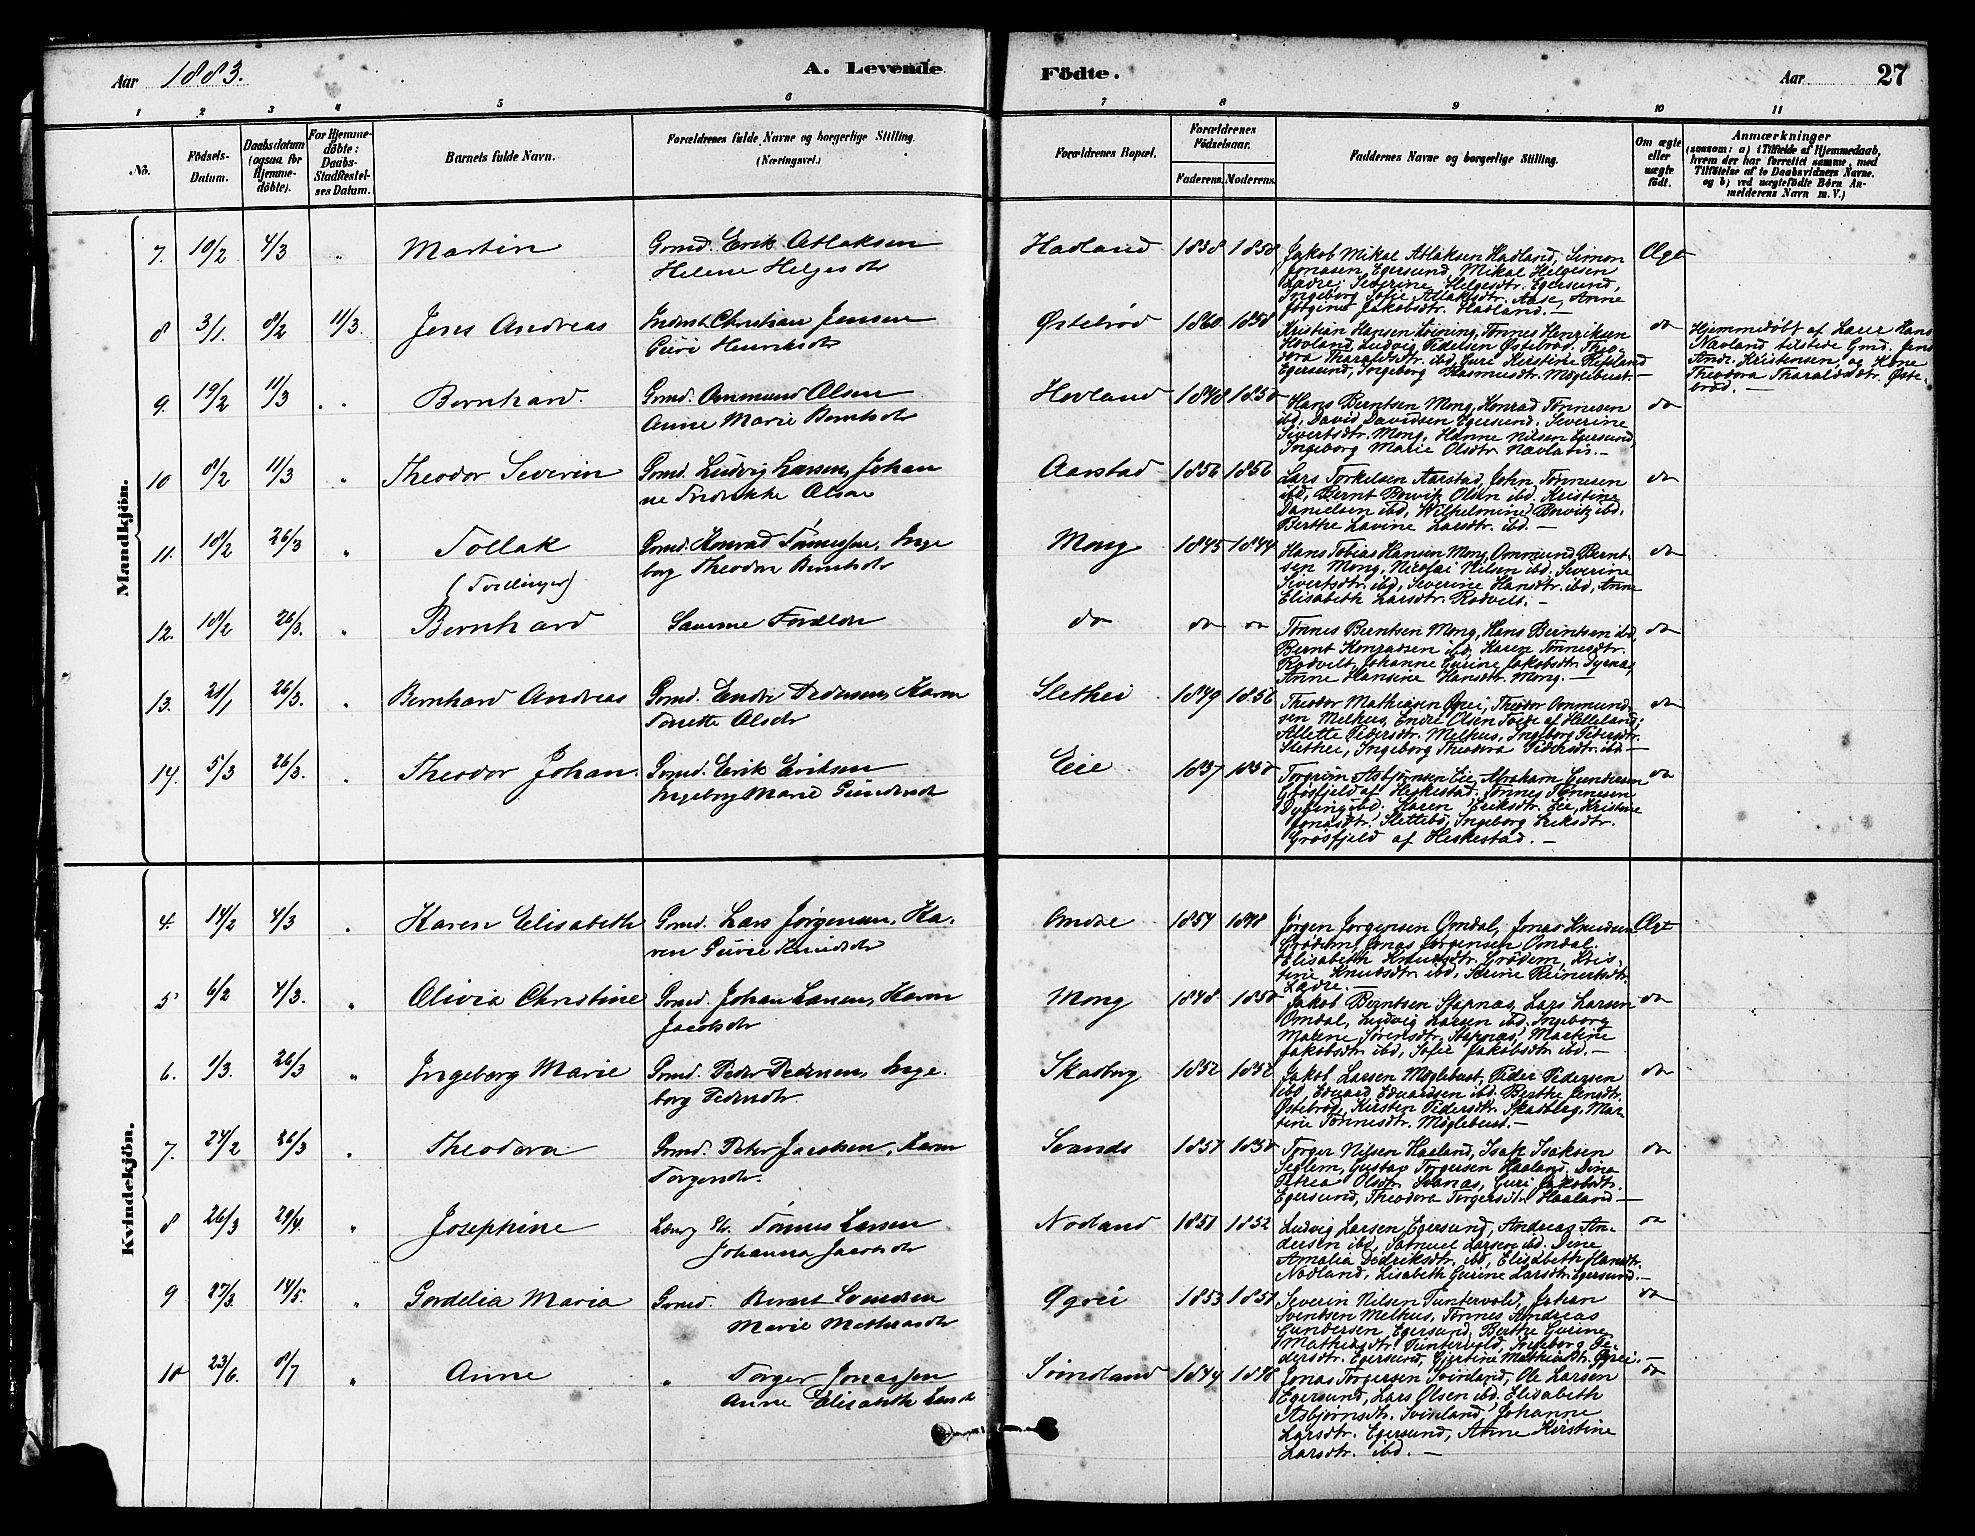 Aar 1883. A. Levende Födte. Aar 27
1 2 3 4 5 6 7 8 9 10 11
No.
Födsels-Datum.
Daabsdatum (ogsaa for Hjemme-döbte).
For Hjemme-döbte: Daabs-Stadfæstel-ses Datum.
Barnets fulde Navn.
Forældrenes fulde Navne og borgerlige Stilling.
(Næringsvei.)
Forældrenes Bopæl.
Forældrenes Födselsaar.
Faderens. Moderens.
Faddernes Navne og borgerlige Stilling.
Om ægte eller uægte födt.
Anmærkninger
(saasom: a) i Tilfælde af Hjemmedaab, hvem der har forrettet samme, med Tilföielse af to Daabsvidners Navne. og b) ved uægtefödte Börn Anmelderens Navn m. V.)
Mandkjön.
7. 10/2 4/3 " Martin
Grmd. Erik Atlaksen
Helene Helgesdtr
Hadland 1838 1850
Jakob Mikal Atlaksen Hadland, Simon
Jonasen Egersund, Mikal Helgesen
Ladre, Severine Helgesdtr. Egersund,
Ingeborg Sofie Atlaksdtr. Aase, Anne
Jörgine Jakobsdtr. Hadland. —
Ægt
8 3/1 8/2 11/3. Jens Andreas
Inderst Christian Jensen
Guri Henriksdtr
Østebrød 1860 1858
Kristian Hansen Loining, Tönnes Henriksen
Hovland, Ludvig Pedersen Østebrød, Theo-
dora Tharaldsdtr. ibd, Gure Kerstine Refsland
Egersund, Ingeborg Rasmusdtr. Möglebust. —
do
Hjemmedöbt af Lærer Hans
Navland tilstede Gmd. Jens
Andr. Kristensen og Kone
Theodora Tharaldsdtr. Øste-
bröd. —
9. 19/2 11/3 " Bernhard.
Grmd. Ommund Olsen
Anne Marie Berntsdtr
Hovland 1848 1850
Hans Berntsen Mong, Konrad Tönnesen
ibd, David Davidsen Egersund, Severine
Sivertsdtr. Mong, Hanne Nilsen Egersund,
Ingeborg Marie Olsdtr.
do
10 8/2 11/3 " Theodor Severin
Grmd. Ludvig Larsen, Johan
ne Fredrikke Olsen
Aarstad 1856 1856
Lars Torkelsen Aarstad, John Tönnesen
ibd, Bernt Olsen ibd, Kristine
Danielsen ibd, Wilhelmine ibd,
Berthe Lavine Larsdtr. ibd. —
do
11. 18/2 26/3 " Tollak
(Tvillinger)
Grmd. Konrad Tönnessen, Inge
borg Theodora Berntsdtr
Mong 1845 1844
Hans Tobias Hansen Mong, Ommund Bernt-
sen Mong, Nicolai Nilsen ibd, Severine
Sivertsdtr. ibd, Severine Hansdtr. ibd, Anne
Elisabeth Larsdtr. Rodvelt. —
do
12. 18/2 26/3. " Bernhard
Samme Foreldre
do do do
Tönnes Berntsen Mong, Hans Berntsen ibd,
Bernt Konradsen ibd, Karen Tönnesdtr.
Rodvelt, Johanne Gurine Jakobsdtr. Dyrnæs,
Anne Hansine Hansdtr. Mong. —
do
13. 21/1 26/3. " Bernhard Andreas
Grmd. Endre Pedersen, Karen
Tonette Olsdtr
Slethei 1849 1856
Theodor Mathiasen Øgrei, Theodor Ommund-
sen Melhus, Endre Olsen Tveide af Helleland,
Allette Pedersdtr. Melhus, Ingeborg Pedersdtr.
Slethei, Ingeborg Theodora Pedersdtr. ibd. —
do
14. 5/3 26/3. " Theodor Johan.
Grmd. Erik Eriksen
Ingeborg Marie Gundersdtr
Eie 1837 1850
Torgrim Asbjørnsen Eie, Abraham Gundersen
Grösfjeld af Heskestad, Tönnes Tönnesen
Dybing ibd. Karen Eriksdtr. Eie, Kristine
Jonasdtr. Slettebö, Ingeborg Eriksdtr.
Grösfjeld af Heskestad. —
do
Kvindekjön.
4. 14/2 4/3 " Karen Elisabeth
Grmd. Lars Jørgensen, Ka-
ren Gurie Knudsdtr
Omdal 1854 1848
Jørgen Jørgensen Omdal, Jonas Knudsen
Grödem, Jonas Jørgensen Omdal.
Elisabeth Knudsdtr. Grödem, Kris-
tine Knudsdtr ibd, Serine Reinertsdtr.
Ladre. —
Ægt
5 6/2 4/3. " Olivia Christine
Grmd. Johan Larsen, Karen
Jacobsdtr
Mong 1848 1850
Jakob Berntsen Stapnæs, Lars Larsen
Omdal, Ludvig Larsen ibd. Ingeborg
Malene Sørensdtr. Stapnæs, Martine
Jakobsdtr ibd, Sofie Jakobsdtr ibd. —
do
6. 1/3. 26/3 " Ingeborg Marie
Grmd. Peder Pedersen, Inge-
borg Pedersdtr
Skadberg 1852 1852
Jakob Larsen Möglebust, Peder Pedersen
ibd, Edvard Edvardsen ibd. Berthe Jensdtr.
Østebrød, Kirsten Pedersdtr. Skadberg, Mar-
tine Tönnesdtr. Möglebust. —
do
7. 24/2 26/3 " Theodora
Grmd. Peter Jacobsen, Karen
Torgersdtr.
Svanæs 1857 1850
Torger Nilsen Haaland, Isak Isaksen
Seglem, Gustav Torgersen Haaland, Dina
Petrea Olsdtr. Svanæs, Guri Jakobsdtr.
Egersund, Theodora Torgersdtr. Haaland —
do
8 26/3 29/4. " Josephine
Tönnes Larsen
Johanna Jacobsdtr
Nodland 1851 1852
Ludvig Larsen Egersund, Andreas An-
dersen ibd, Samuel Larsen ibd. Dine
Amalia Didriksdtr. ibd, Elisabeth Hansdtr.
Nodland, Lisabeth Gurine Larsdtr. Egersund. —
do
9 27/3. 14/5. " Gordelia Maria
Grmd. Bernt Svendsen
Marie Mathiasdtr
Øgrei 1853 1851
Severin Nilsen Tuntervold, Johan
Svendsen Melhus, Tönnes Andreas
Gundersen Egersund, Berthe Gurine
Mathiasdtr. Tuntervold, Ingeborg Pe-
dersdtr. Egersund, Gjertine Mathiasdtr. Øgrei. —
do
10 23/6. 8/7 " Anne
" Torger Jonassen
Anne Elisabeth Larsdtr
Svindland 1844 1848
Jonas Torgersen Svinland, Ole Larsen
Egersund, Lars Olsen ibd. Elisabeth
Asbjørnsdtr. Svinland, Johanne
Larsdtr. Egersund, Anne Kirstine
Larsdtr. ibd. —
do